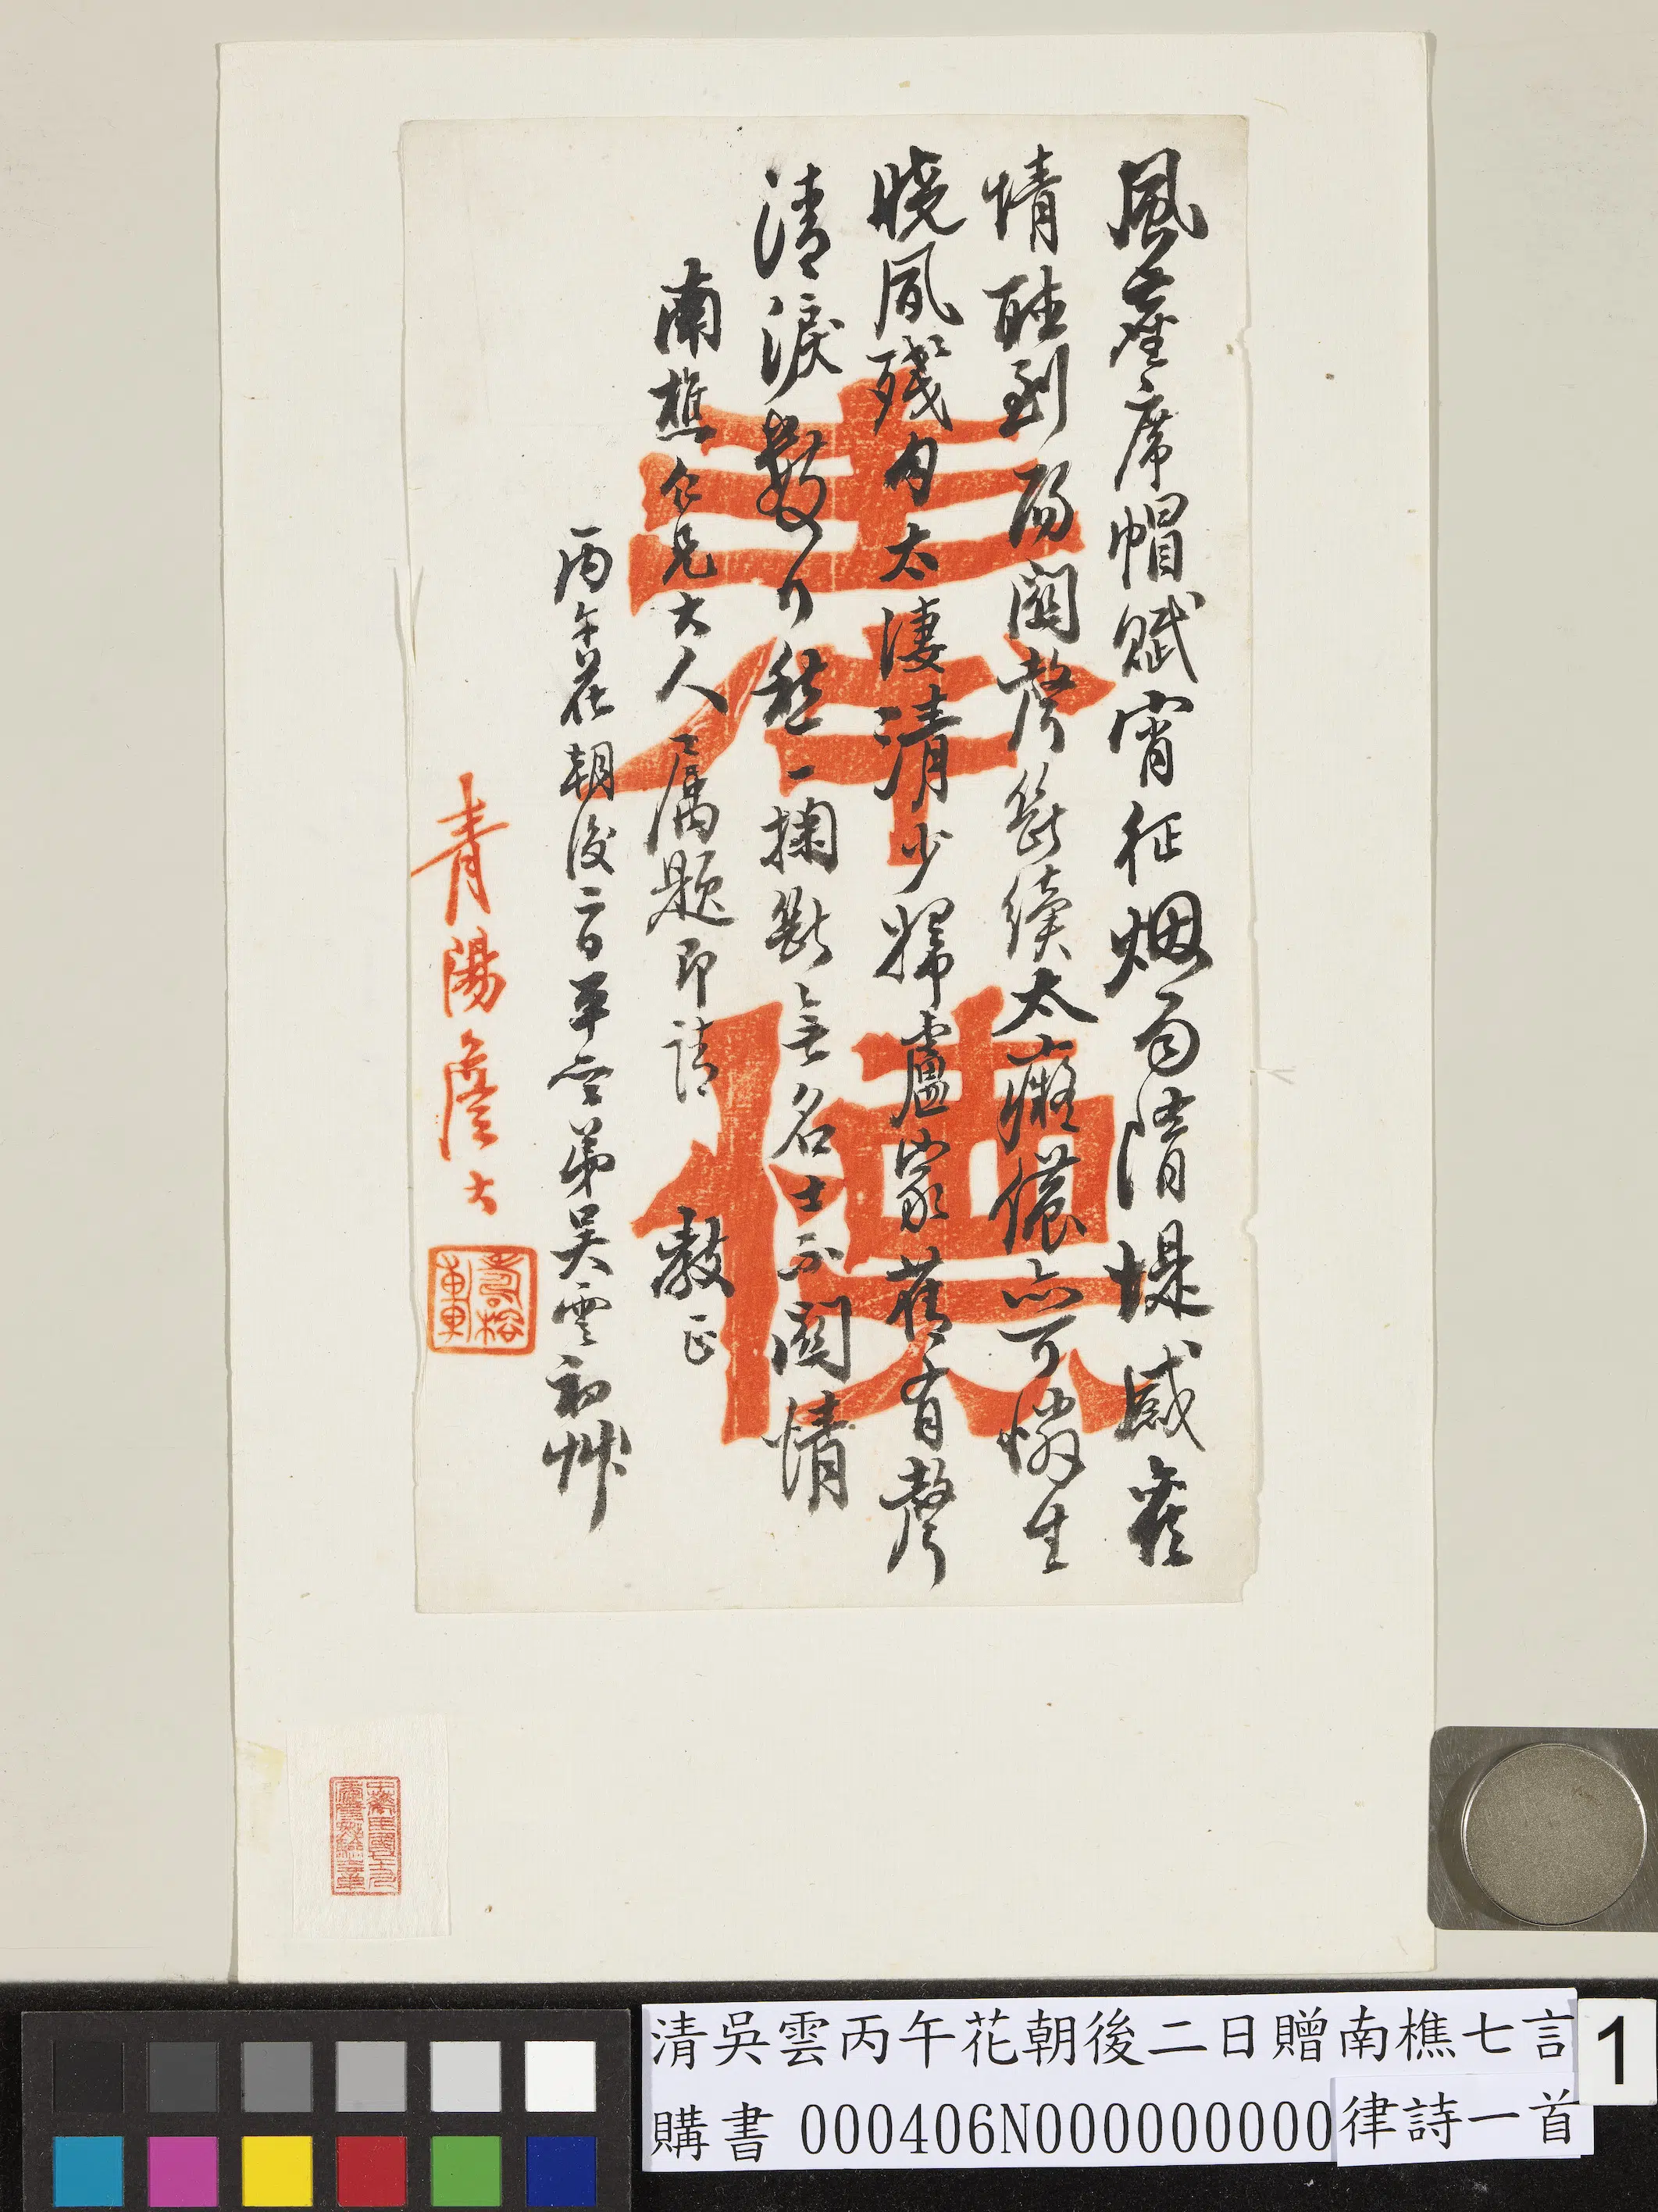 風塵席帽賦宵征烟雨隋堤感舊
情聽到陽關聲斷續太癡儂亦可憐生
曉風殘月太淒清少婦盧家舊有聲
清淚數行愁一掬斷無名士不關情
南樵仁兄大人屬題即請 教正
丙午花朝後二日平齋弟吳雲初艸
青陽詹大
清吳雲丙午花朝後二日贈南樵七言
律詩一首
購書 000406N000000000
1